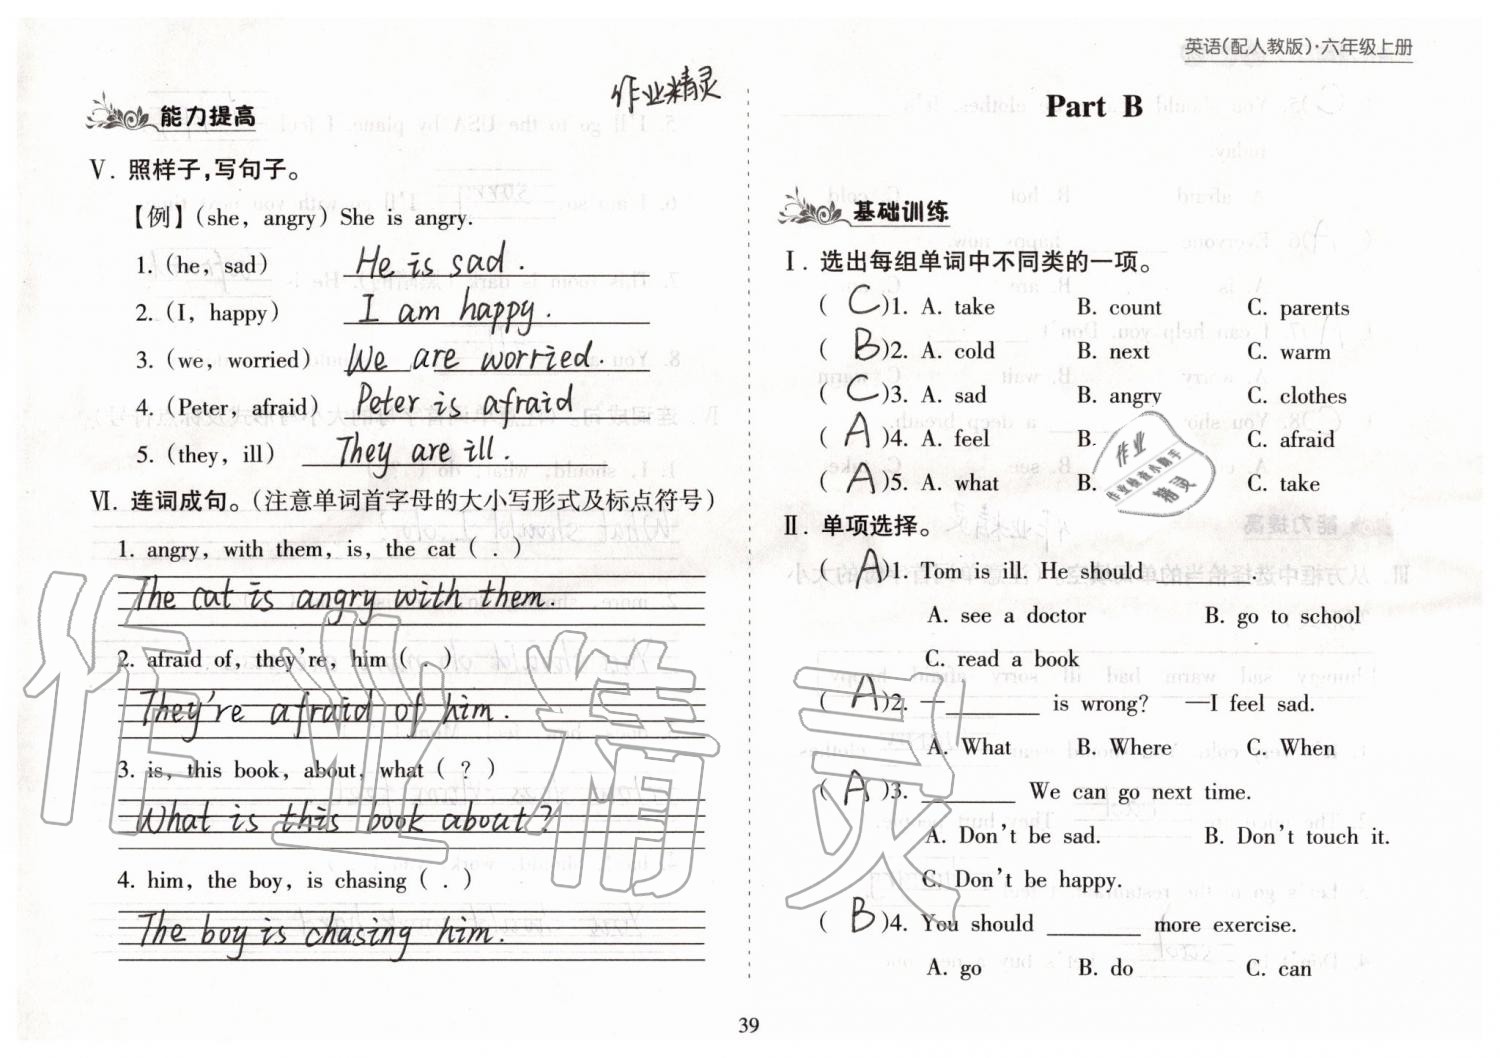 英语(配人教版)·六年级上册
作业精灵
能力提高
Ⅴ. 照样子,写句子。
【例】(she, angry) She is angry.
1. (he, sad) He is sad.
2. (I, happy) I am happy.
3. (we, worried) We are worried.
4. (Peter, afraid) Peter is afraid
5. (they, ill) They are ill.
Ⅵ. 连词成句。(注意单词首字母的大小写形式及标点符号)
1. angry, with them, is, the cat ( . )
The cat is angry with them.
2. afraid of, they're, him ( . )
They're afraid of him.
3. is, this book, about, what ( ? )
What is this book about?
4. him, the boy, is chasing ( . )
The boy is chasing him.
Part B
基础训练
Ⅰ. 选出每组单词中不同类的一项。
( C )1. A. take B. count C. parents
( B )2. A. cold B. next C. warm
( C )3. A. sad B. angry C. clothes
( A )4. A. feel B. C. afraid
( A )5. A. what B. C. take
作业
作业检查小助手
精灵
Ⅱ. 单项选择。
( A )1. Tom is ill. He should ________.
A. see a doctor B. go to school
C. read a book
( A )2. —________ is wrong? —I feel sad.
A. What B. Where C. When
( A )3. ________ We can go next time.
A. Don't be sad. B. Don't touch it.
C. Don't be happy.
( B )4. You should ________ more exercise.
A. go B. do C. can
作业精灵
39